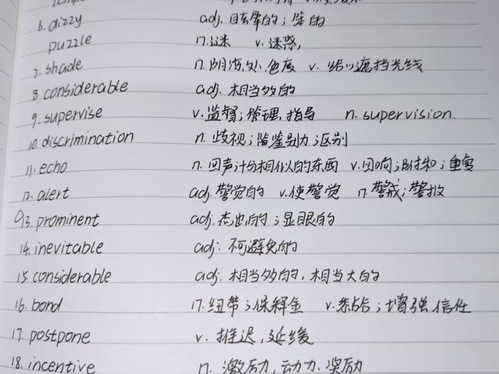 6. dizzy adj. 目眩的；笨的
puzzle n.谜 v.迷惑,
7. shade n.阴凉处,色度 v. 给(以)遮挡光线
8. considerable adj. 相当多的
9. supervise v.监督；管理,指导 n. supervision.
10. discrimination n. 歧视；鉴别力；区别
11. echo n. 回声；十分相似的东西 v.回响；附和；重复
12. alert adj. 警觉的 v.使警觉 n.警戒；警报
13. prominent adj. 杰出的；显眼的
14. inevitable adj. 不可避免的
15. considerable adj. 相当多的,相当大的
16. bond n.纽带；保释金 v.；增强信任
17. postpone v. 推迟,延缓
18. incentive n. 激励,动力.奖励